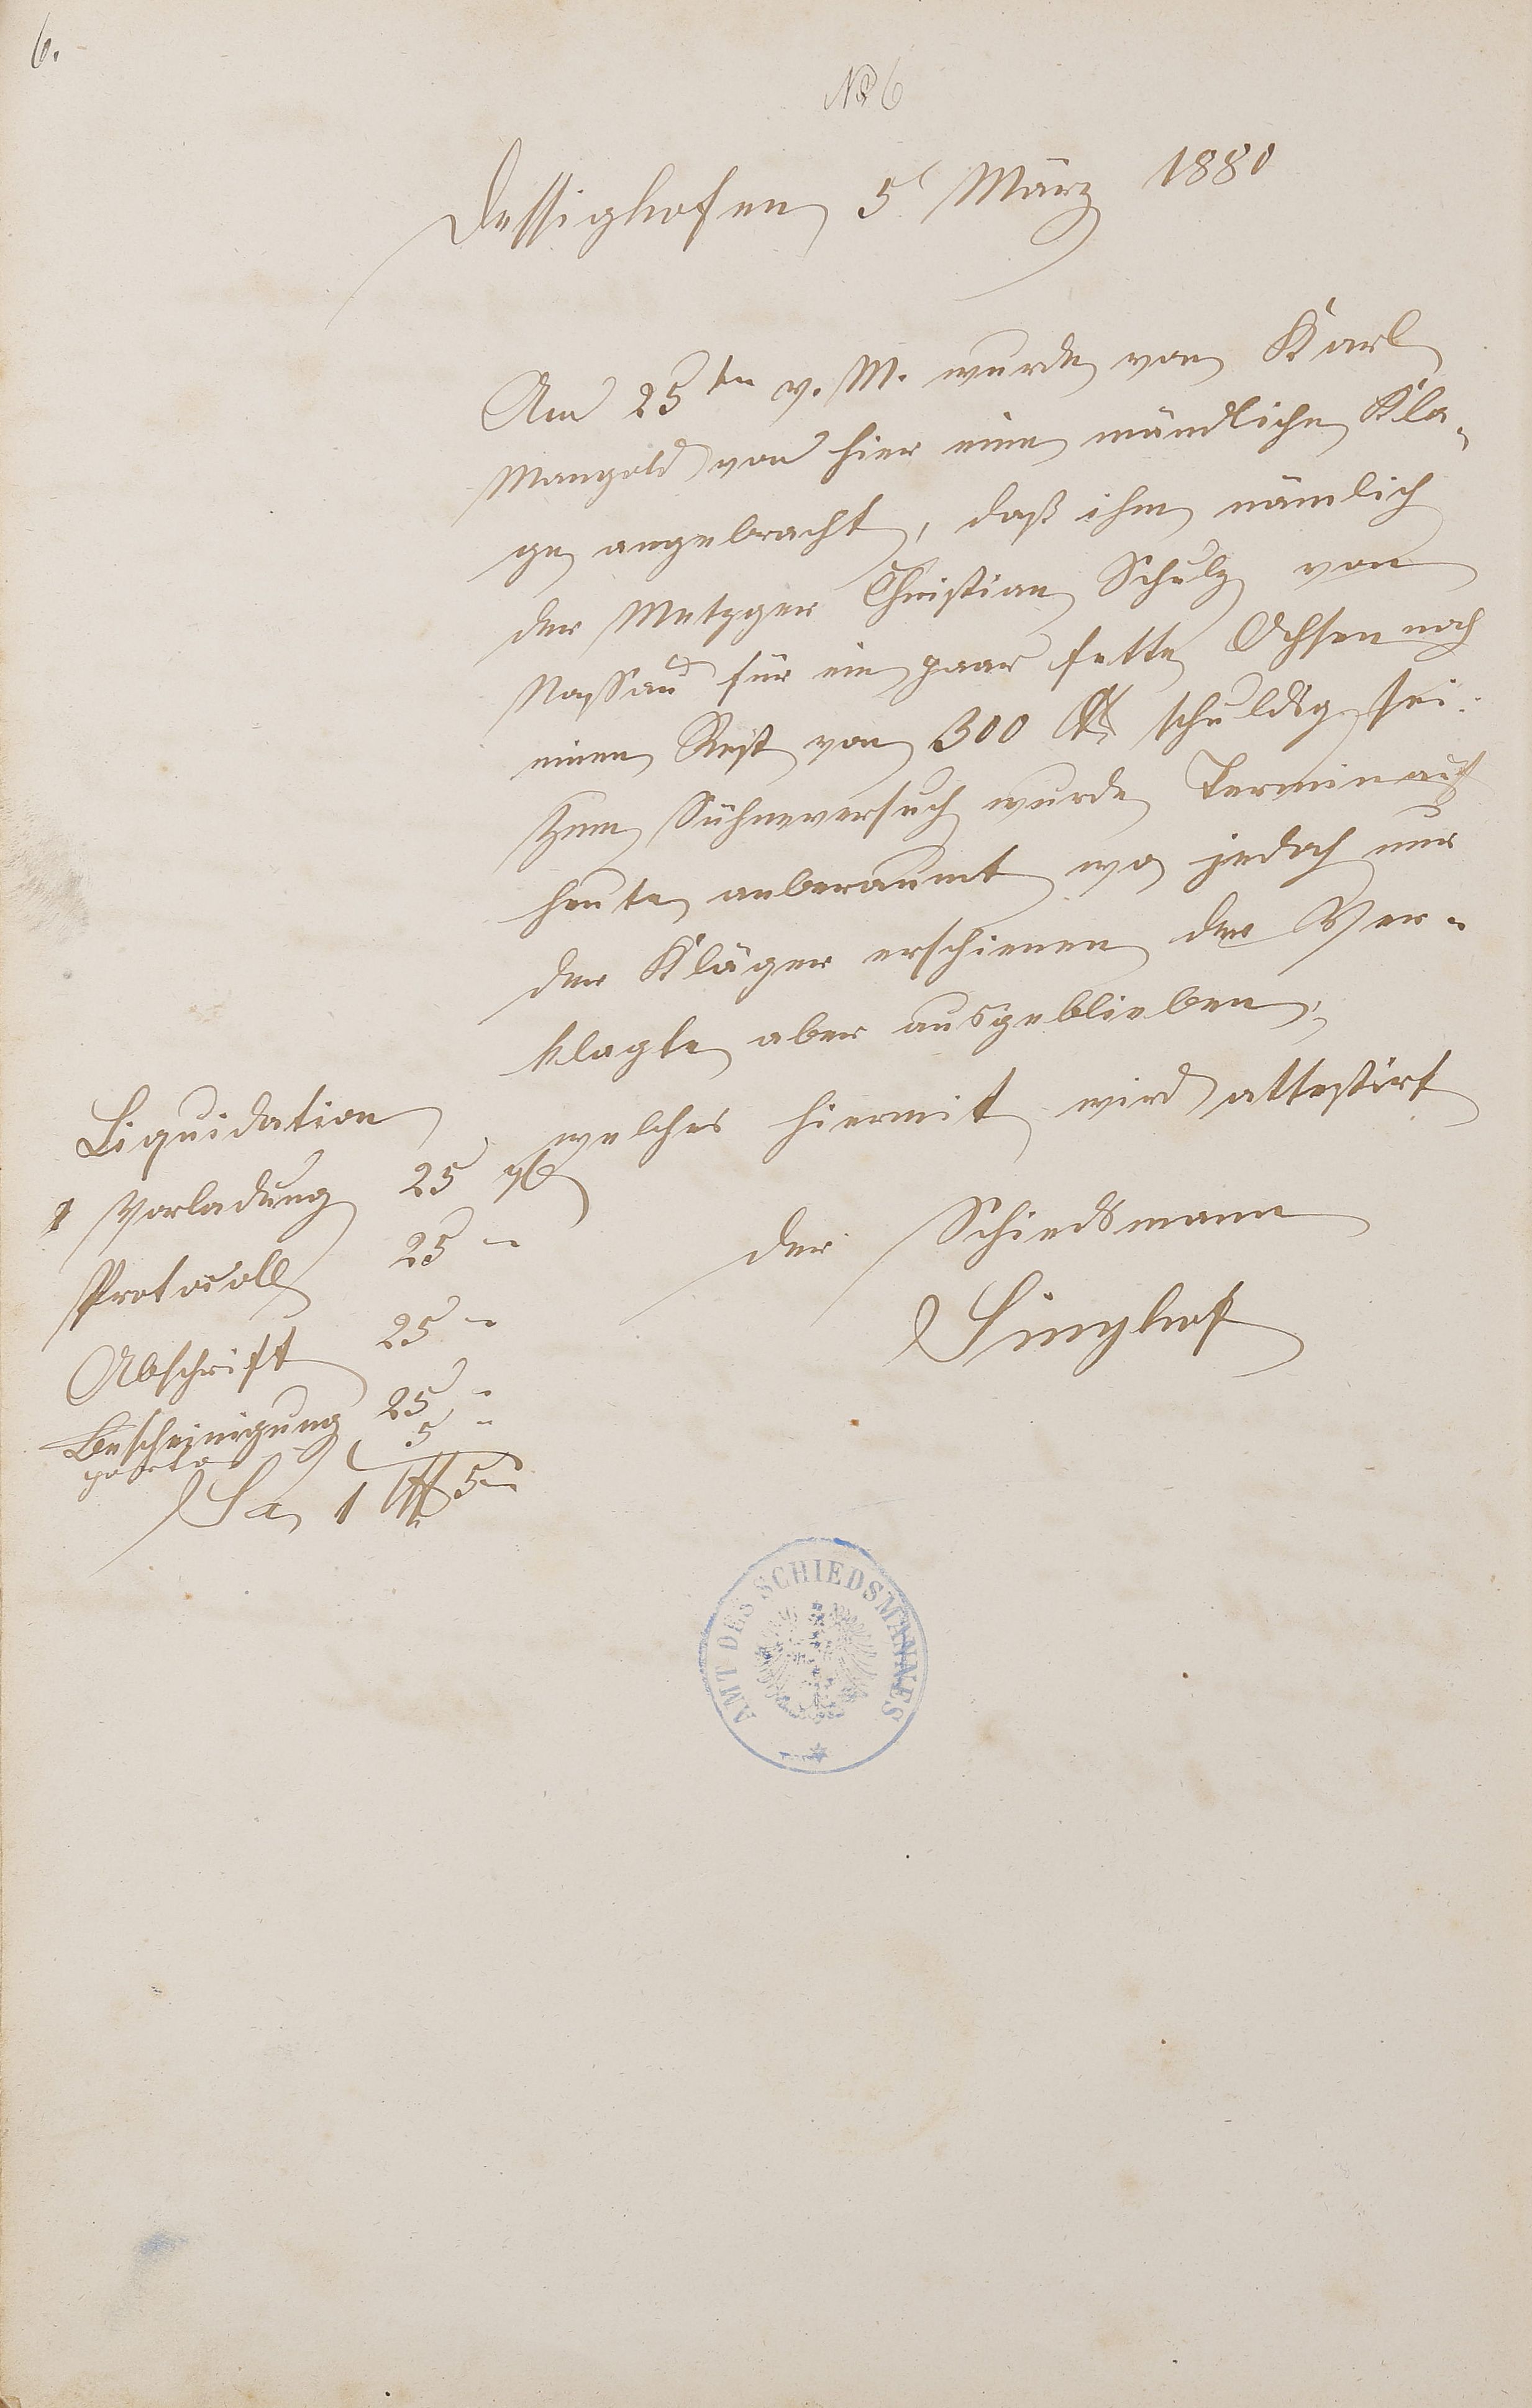 6.
No 6
Dessighofen 5 März 1880
Am 25ten v. M. wurde von Karl
Mangold von hier eine mündliche Kla-
ge angebracht, daß ihm nämlich
der Metzger Christian Schulz von
Nassau für ein paar fette Ochsen noch
einen Rest von 300 M schuldig sei.
Zum Sühneversuch wurde Termin auf
heute anberaumt wo jedoch nur
der Kläger erschienen der Ver-
klagte aber ausgeblieben,
welches hiermit wird attestirt
der Schiedsmann
Singhof
Liquidation
1 Vorladung 25 ₰
Protocoll 25 "
Abschrift 25 "
Bescheinigung 25 "
porto 5 "
Sa. 1 M 5 "
AMT DES SCHIEDSMANNES